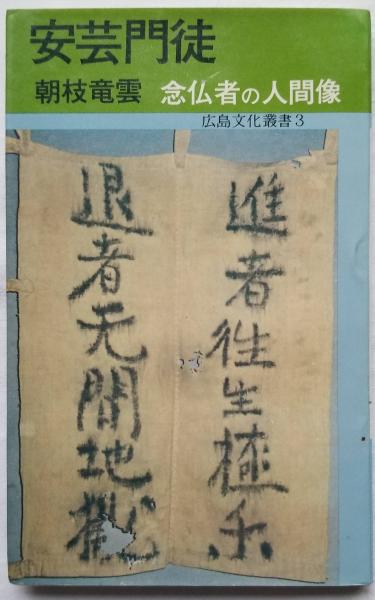 安芸門徒
朝枝竜雲 念仏者の人間像
広島文化叢書3
進者往生極楽
退者无間地獄